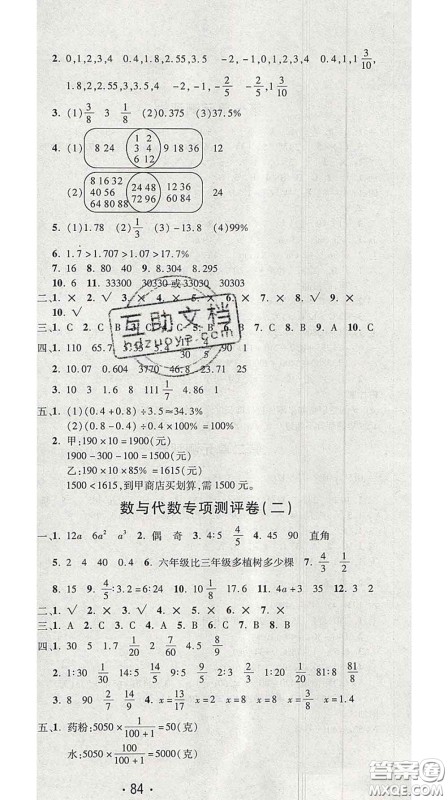 2. 0,1,2,3,4 0.4,1.8,2.55,3.5 -2,-1,-2/5 0,1,2,3,4 0.4,1,1 3/10,
1.8,2,2.55,3,3.5,4 -2,-1,-2/5 -2/5 3/10
3. (1)3/8 3 1/8 (2)0.375 (3)37.5%
4. (1) 8 24 1 2 3 4 6 12 9 18 36 12
(2) 8 16 32 40 56 64 80 88 24 48 72 96 12 36 60 84 24
5. (1)1.78 (2)1/3 (3)-13 (4)99%
6. 1.7>1.707>1.07>17.%
7. 16 8. 80 40 9. 8.304 8.295
10. 6 11. 33300 30330 或 33030 30303
二、1. × 2. √ 3. × 4. × 7. × 8. √ 9. ×
10. √
三、1. C 2. C 3. B 7. B 8. C 9. A 10. C
四、1. 110 65.7 5.4
2. 10.07 0.234 3760 4.68 23.71 25
3. 10 3 1.8 111 1/7 4.86 1 1
五、1. (1)(0.4+0.8)÷3.5≈34.3%
(2)(0.4+0.8)÷0.8=150%
2. 甲:190×10=1900(元)
1900-300-100=1500(元)
乙:190×10×85%=1615(元)
1500<1615,到甲商店买划算,需 1500 元。
数与代数专项测评卷(二)
一、1. 12a 6a² a³ 2. 偶 奇 3. 4/5 4. 45 90 直角
5. 2 4 40 0.4 6. 六年级比三年级多植树多少棵 7. 4/3 1/2
8. 15 9. 4/5:2/5=6:3 10. 5 4 11. 4a+35 12. 3 2
二、1. √ 2. √ 3. × 4. √ 5. × 6. × 7. ×
三、1. A 2. C 3. C 4. C 5. B 6. B 7. C 8. C
四、1. 30 5 1.7 1/20 2 7/60 8.5 2/3
2. 1:30 1/30 14:5 14/5 9:5 9/5 2:1 2 81:8 81/8
3. 8 90 12/144 x=13/17 x=2 x=8 x=3/8 x=1.4
五、1. 药粉:5050×1/(100+1)=50(克)
水:5050×100/(100+1)=5000(克)
· 84 ·
互助文档
hdzuoye.com
答案圈
MXQE.COM